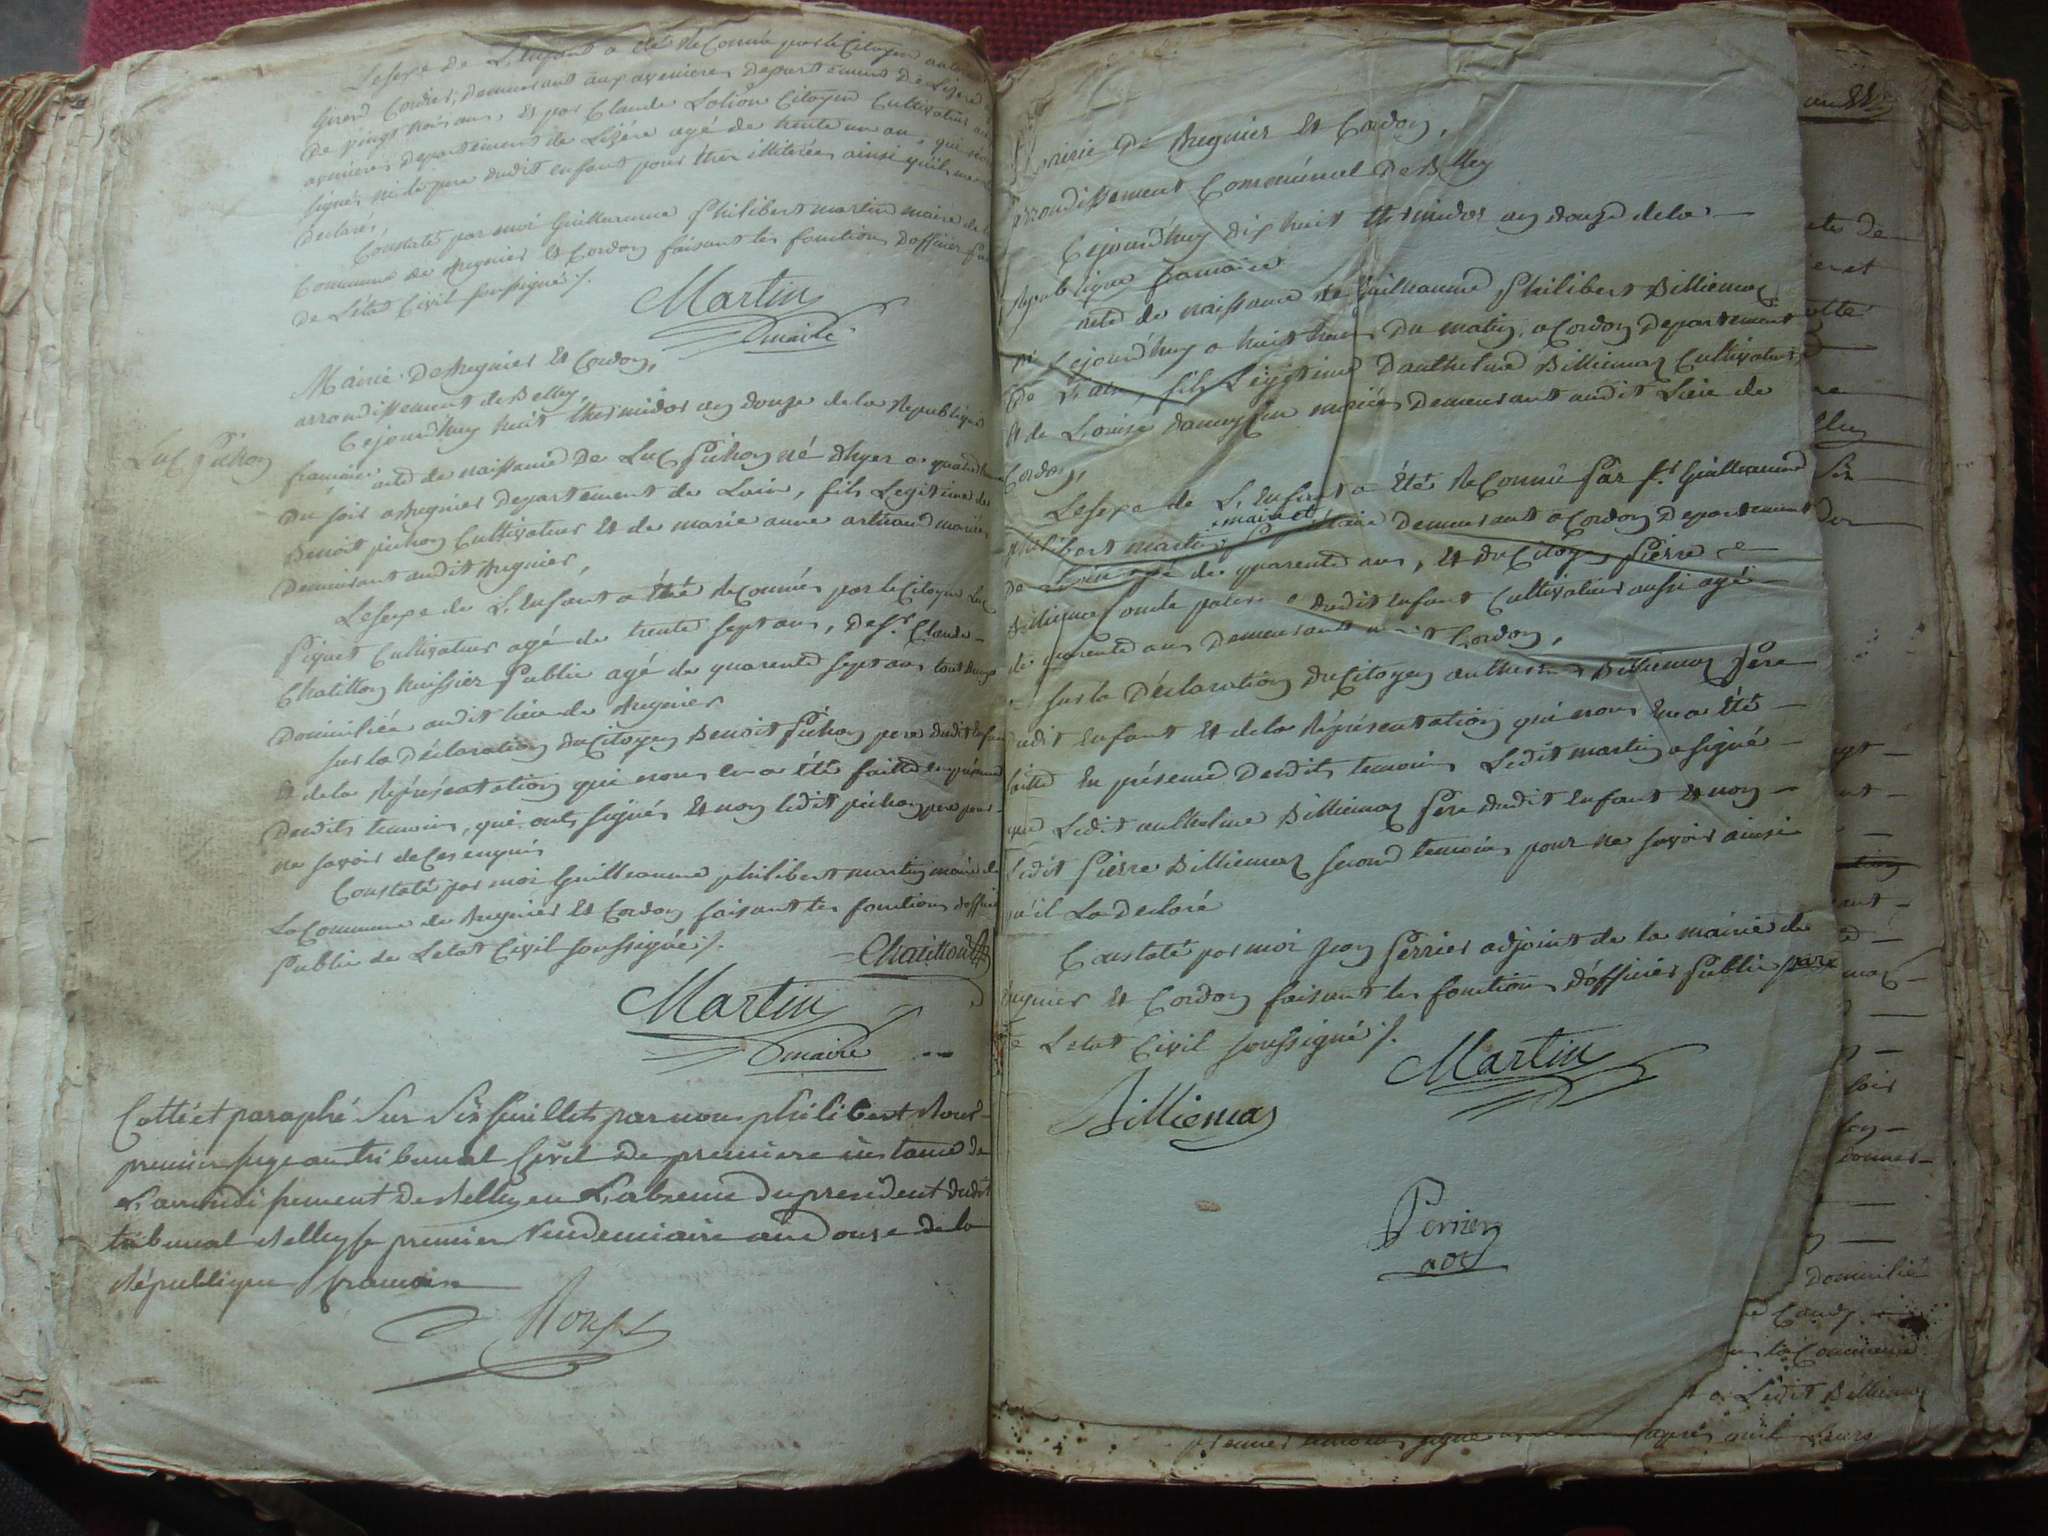 Le sexe de L'enfant a été Reconnu par le Citoyen
Cordier, demeurant aux avenieres departement de Lizere
de vingt trois ans, et par Claude Citoyen Cultivateur
avenieres departement de Lizére agé de trente un an, qui
signés ni le pere dudit enfant pour être illiterés ainsi qu'ils
declarés,
Constaté par moi Guillaume philibert martin maire de
Commune de Bregnier et Cordon faisant les fonctions d'officier
de L'état Civil soussigné ./.
Martin
maire
Mairie de Bregnier et Cordon,
arrondissement de Belley,
Luc pichon
Cejourd'huy huit thermidor an douze de la Republique
francaise acte de naissance de Luc pichon né d'hyer a quatre
du soir a Bregnier departement de Lain, fils Legitime de
Benoit pichon Cultivateur et de marie anne artaud mariés
demeurant audit Bregnier,
Le sexe de L'enfant a été Reconnu par le Citoyen Luc
Piquet Cultivateur agé de trente sept ans, de Sr. Claude
Chatillon huissier public agé de quarente sept ans tout
domiciliés audit lieu de Bregnier
sur la déclaration du Citoyen Benoit Pichon pere dudit enfant
et de la Réprésentation qui nous en a été faitte en présence
desdits temoins, qui onts signés et non ledit pichon pere pour
ne savoir de Ces enquis
Constaté par moi guilleaume philibert martin maire de
La Commune de Bregnier et Cordon faisant les fonctions d'officier
Public de Letat Civil soussigné ./.
Chatillon
Martin
maire
Cotté et paraphé sur six feuillets par nous philibert Roux
premier juge au tribunal Civil de premiere instance de
L'arrondissement de Belley en L'absence du president dudit
tribunal Belley le premier Vendemiaire an douse de la
République francaise
Roux
Mairie de Bregnier et Cordon,
arrondissement Communal de Belley
Cejourd'huy dix huit thermidor an douze de la
Republique francaise
acte de naissance de Guilleaume Philibert Billiemaz
né Cejourd'huy a huit heures du matin, a Cordon departement
de L'ain, fils Légitime d'anthelme Billiemaz Cultivateur,
et de Louise mariés demeurant audit Lieu de
Cordon,
Le sexe de L'enfant a été Reconnu par Sr. Guilleaume
maire et
philibert martin propriétaire demeurant a Cordon departement
de L'ain agé de quarente ans, et du Citoyen Pierre
Billiemaz oncle paternel dudit enfant Cultivateur aussi agé
de quarente ans demeurant audit Cordon,
sur la déclaration du Citoyen anthelme Billiemaz père
dudit enfant et de la Réprésentation qui nous en a été
faitte en présence desdits temoins Ledit martin a signé
que Ledit anthelme Billiemaz père dudit enfant et non
Ledit Pierre Billiemaz second temoin pour ne savoir ainsi
qu'il La declaré
Constaté par moi jean Perrier adjoint de la mairie de
Bregnier et Cordon faisant les fonctions d'officier Public
de Letat Civil soussigné ./.
Martin
Billiemaz
Perrier
domicilié
la Commune
Ledit Billiemaz